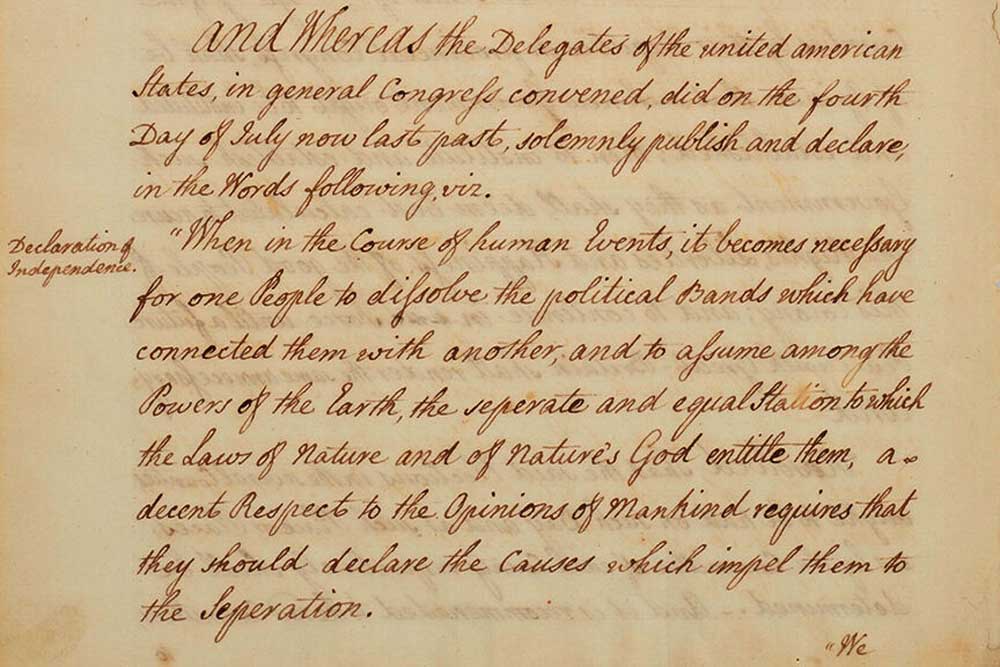 and Whereas the Delegates of the united american
States, in general Congreſs convened, did on the fourth
Day of July now last past, solemnly publish and declare,
in the Words following, viz.
"When in the Course of human Events, it becomes neceſsary
Declaration of
Independence.
for one People to diſsolve the political Bands which have
connected them with another, and to aſsume among the
Powers of the Earth, the seperate and equal Station to which
the Laws of Nature and of Nature's God entitle them, a
decent Respect to the Opinions of Mankind requires that
they should declare the Causes which impel them to
the Seperation.
"We